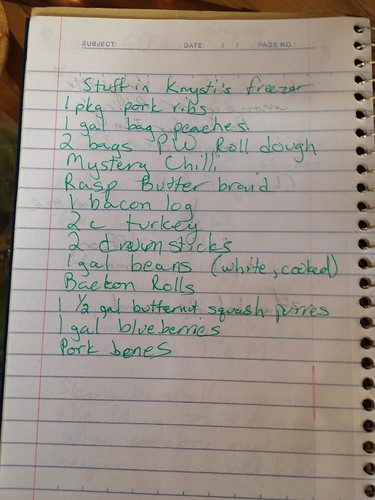 SUBJECT: DATE: / / PAGE NO.:
Stuff in Krysti's freezer
1 pkg pork ribs
1 gal bag peaches.
2 bags PW Roll dough
Mystery Chilli
Rasp Butter braid
1 bacon log
2 c turkey
2 drumsticks
1 gal beans (white, cooked)
Rolls
1 1/2 gal butternut squash
1 gal blueberries
Pork bones